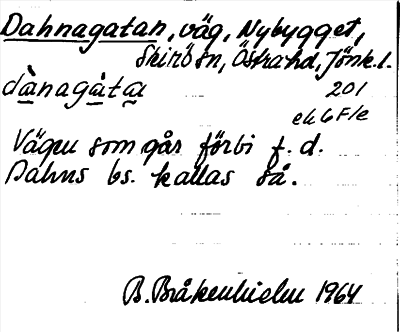 Dahnagatan, väg, Nybygget,
Skirö sn, Östra hd, Jönk.l.
dànagàta
201
ek 6F/e
Vägen som går förbi f.d.
Dahns bs. kallas så.
B. Bråkenhielm 1964